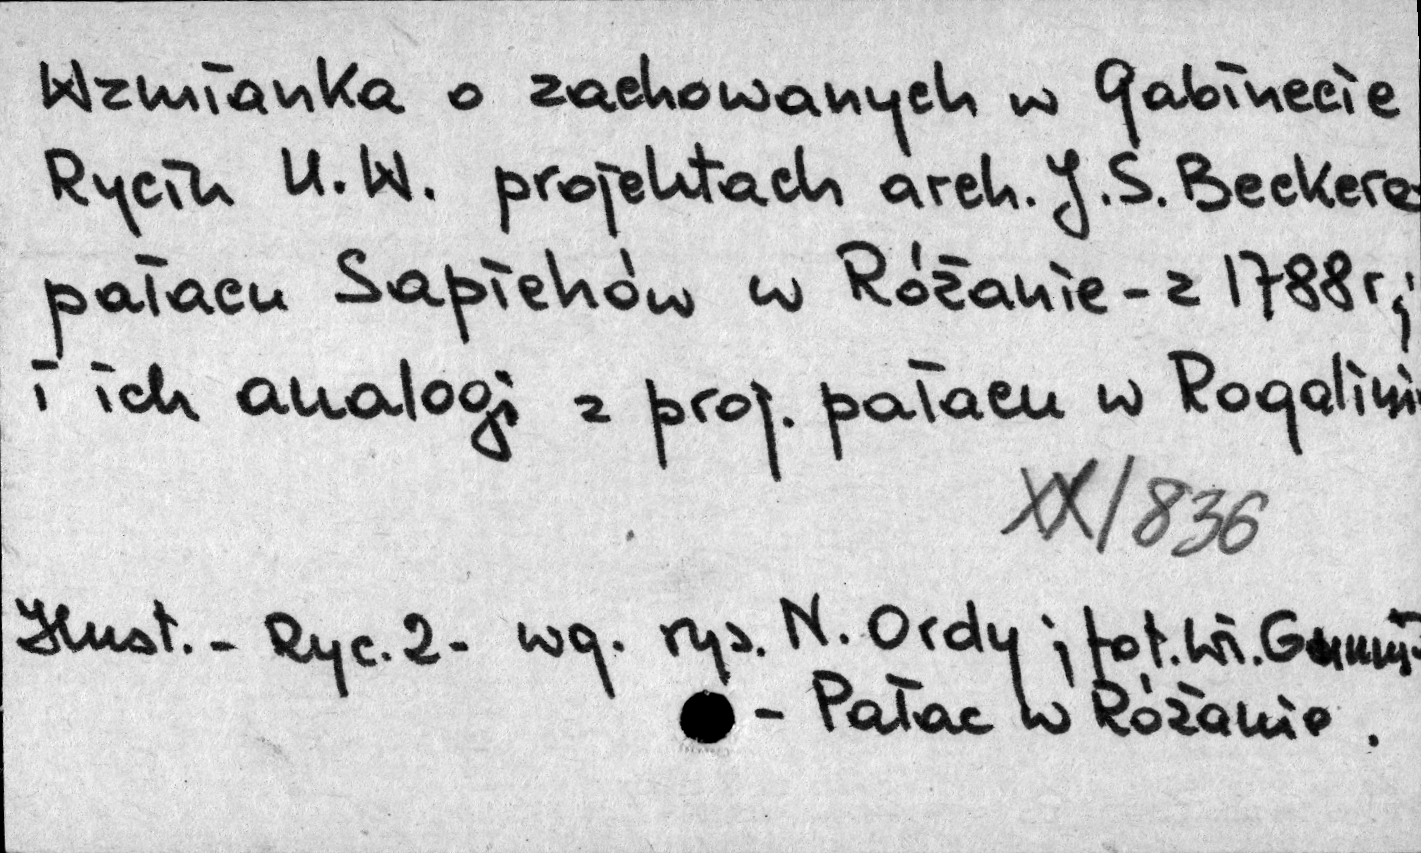 Wzmianka o zachowanych w Gabinecie
Rycin U.W. projektach arch. J.S. Beckera
pałacu Sapiehów w Różanie - z 1788 r.;
i ich analogj z proj. pałacu w Rogalini
XX/836
Ilust. - Ryc. 2 - wg. rys. N. Ordy ; fot. Wi.
- Pałac w Różanie .